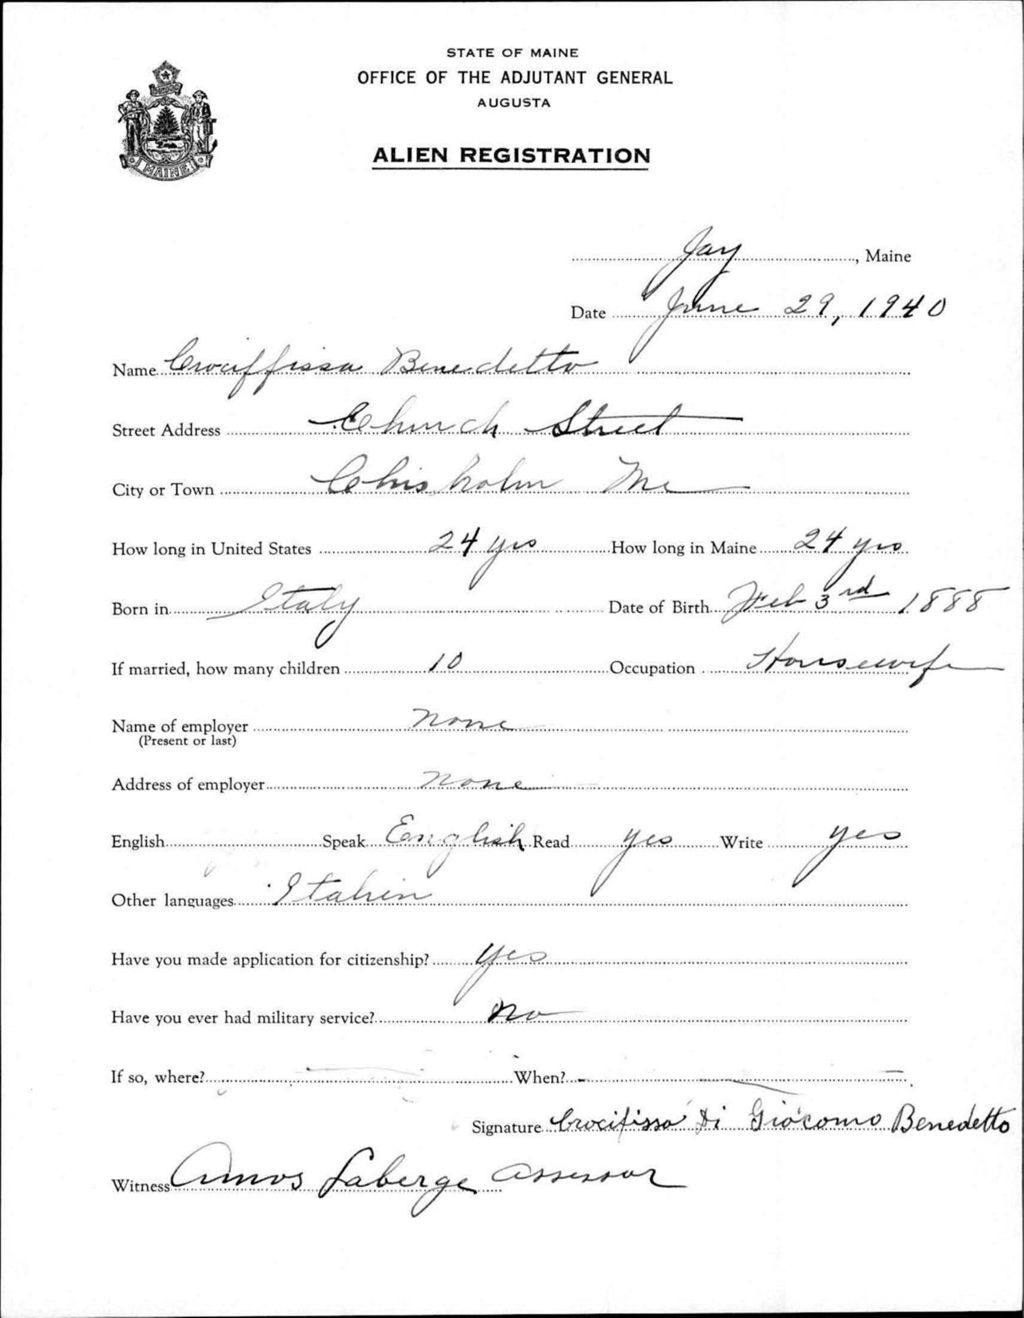 STATE OF MAINE
OFFICE OF THE ADJUTANT GENERAL
AUGUSTA
ALIEN REGISTRATION
MAINE
Jay, Maine
Date June 29, 1940
Name Crociffissa Benedetto
Street Address Church Street
City or Town Chisholm Me
How long in United States 24 yrs How long in Maine 24 yrs
Born in Italy Date of Birth Feb 3rd 1888
If married, how many children 10 Occupation Housewife
Name of employer none
(Present or last)
Address of employer none
English Speak English Read yes Write yes
Other languages Italien
Have you made application for citizenship? yes
Have you ever had military service? no
If so, where? When?
Signature Crocifissa Di Giacomo Benedetto
Witness Amos Laberge assessor